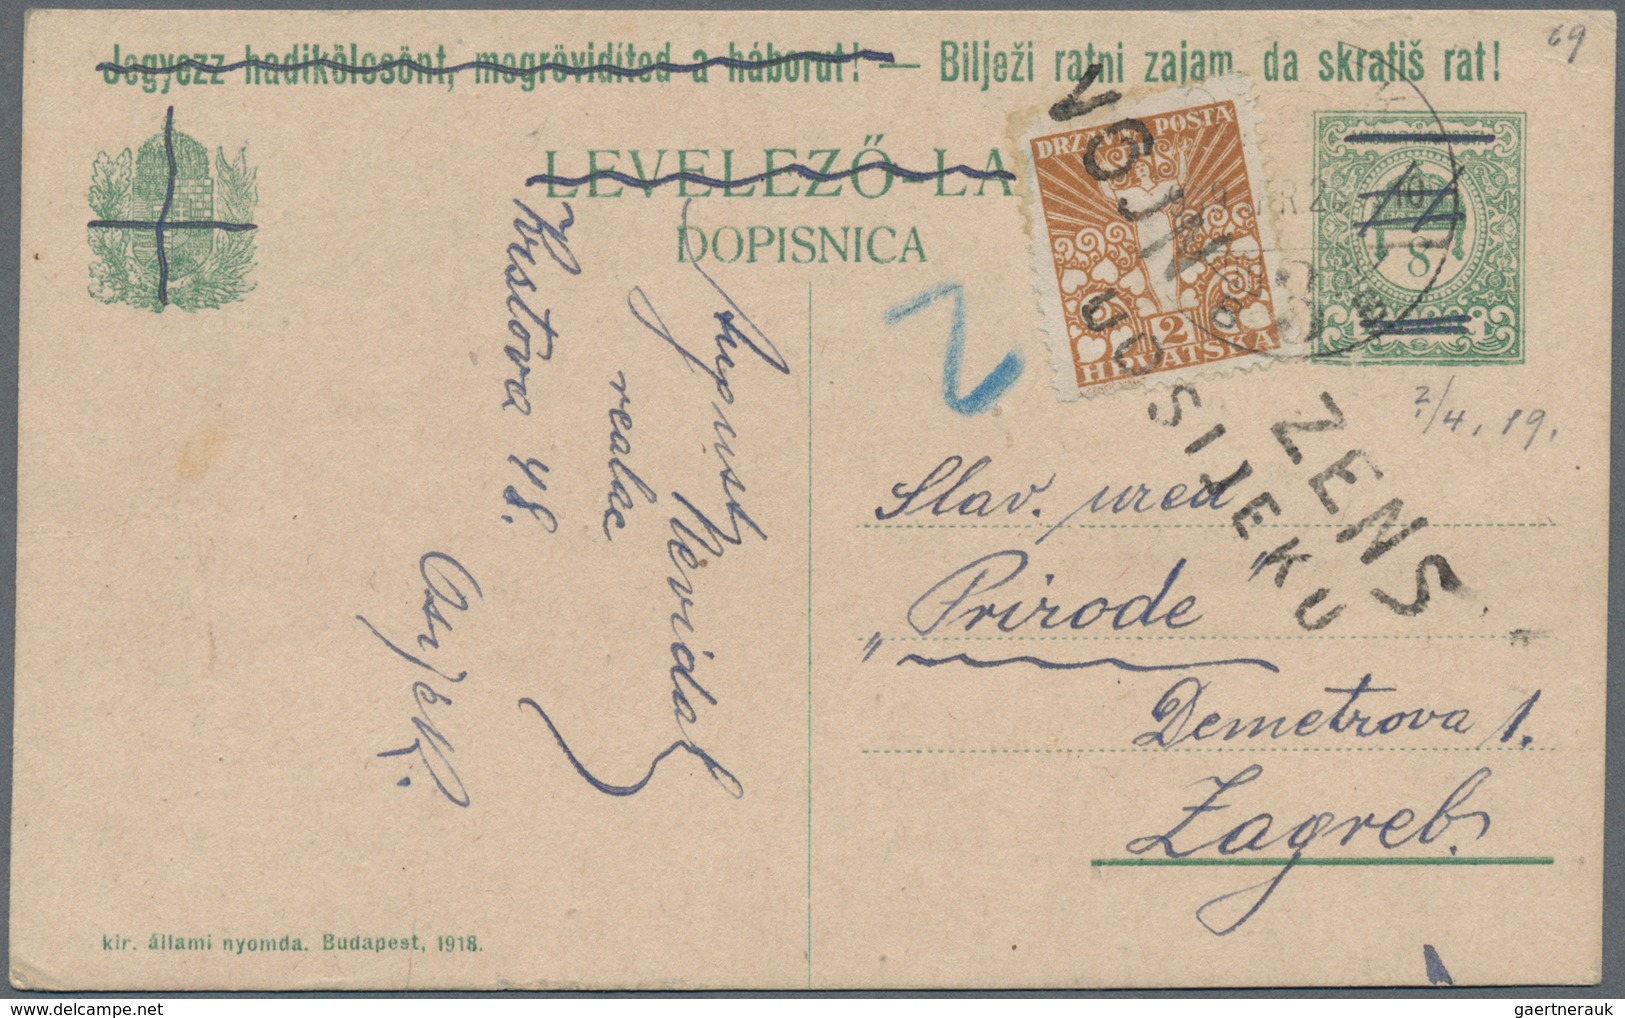 69
Jegyezz hadikölcsönt, megrövidíted a háborut! — Bilježi ratni zajam, da skratiš rat!
LEVELEZŐ-LA
DOPISNICA
DRZAVNA POSTA
2
HRVATSKA
8
VOJN ZENS
U OSIJEKU
2
2/4. 19.
Slav. ured
„Prirode"
Demetrova 1.
Zagreb.
August
realac
Krstova 48.
Osijek.
kir. állami nyomda. Budapest, 1918.
gaertnerauk @ delcampe.net